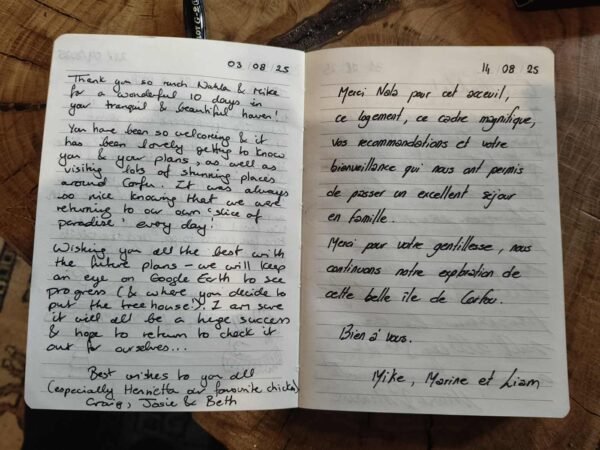 03/08/25
Thank you so much Nahla & Mike
for a wonderful 10 days in
your tranquil & beautiful haven!
You have been so welcoming & it
has been lovely getting to know
you & your plans, as well as
visiting lots of stunning places
around Corfu. It was always
so nice knowing that we were
returning to our own 'slice of
paradise' every day!
Wishing you all the best with
the future plans - we will keep
an eye on Google Earth to see
progress (& where you decide to
put the treehouse!). I am sure
it will all be a huge success
& hope to return to check it
out for ourselves...
Best wishes to you all
(especially Henrietta our favourite chicken)
Craig, Josie & Beth
14/08/25
Merci Nala pour cet acceuil,
ce logement, ce cadre magnifique,
vos recommandations et votre
bienveillance qui nous ont permis
de passer un excellent séjour
en famille.
Merci pour votre gentillesse, nous
continuons notre exploration de
cette belle île de Corfou.
Bien à vous.
Mike, Marine et Liam